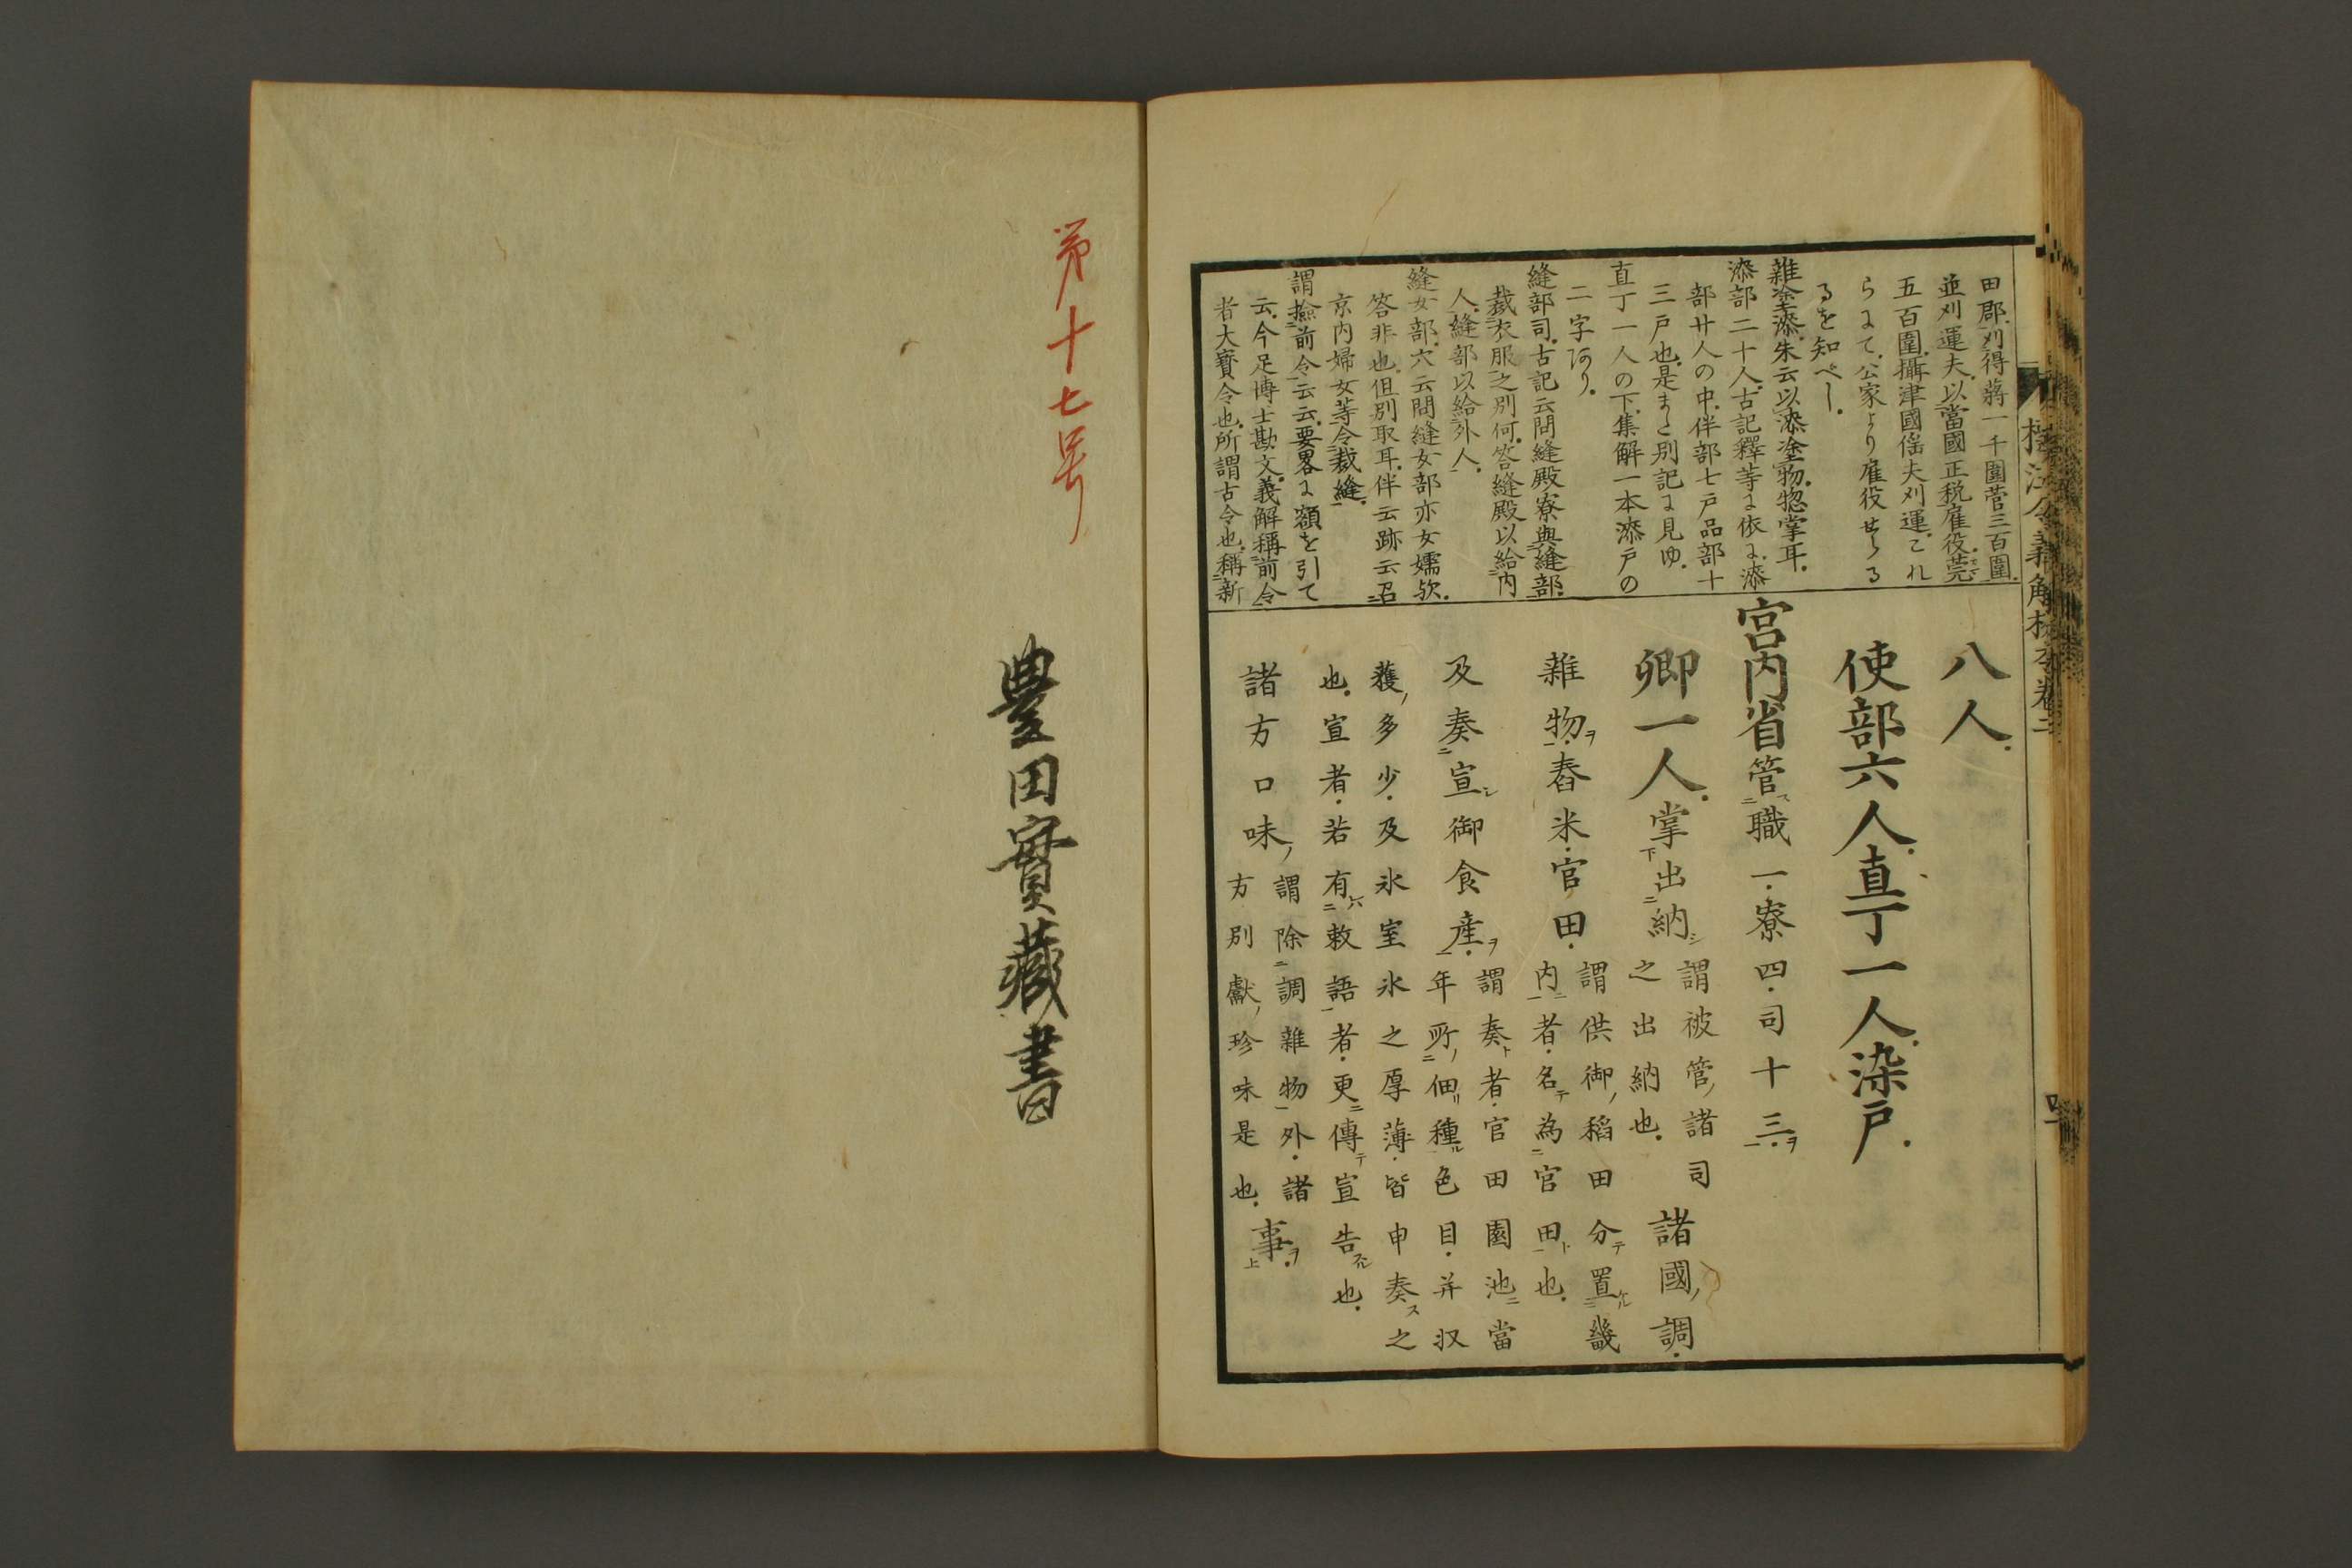 田郡、刈得蔣一千圍菅三百圍、
並刈運夫、以當國正税雇役、莞
五百圍、攝津國徭夫刈運、これ
らにて、公家より雇役せらる
るを知べし、
雜塗漆、朱云以漆塗物、惣掌耳、
漆部二十人、古記釋等に依に、漆
部廿人の中、伴部七戸品部十
三戸也、是また別記に見ゆ、
直丁一人の下、集解一本漆戸の
二字あり、
縫部司、古記云問縫殿寮與縫部
裁衣服之別何、答縫殿以給内
人、縫部以給外人、
縫女部、穴云問縫女部亦女孺歟、
答非也、但別取耳、伴云跡云召
京内婦女等令裁縫、
謂撿前令云云、要畧に額を引て
云、今足博士勘文、義解稱前令
者大寳令也、所謂古令也、稱新
八人、
使部六人、直丁一人、染戸、
宮内省管ス職一、寮四、司十三、ヲ
卿一人、掌出納シ謂被管ノ諸司
之出納也、諸國ノ調、
雜物ヲ、舂米、官田、謂供御ノ稻田分テ置ケル畿
内者、名テ為官田ト也、
及奏宣シ御食産ヲ、謂奏ト者、官田園池ニ當
年所ノ佃リ種ル色目、并収
穫ノ多少、及氷室氷之厚薄、皆申奏ス之
也、宣者、若有ハ敕語者、更傳テ宣告スル也、
諸方口味ノ謂除調雜物外、諸
方別獻ノ珍味是也、事ヲ、
第十七号
豊田實藏書